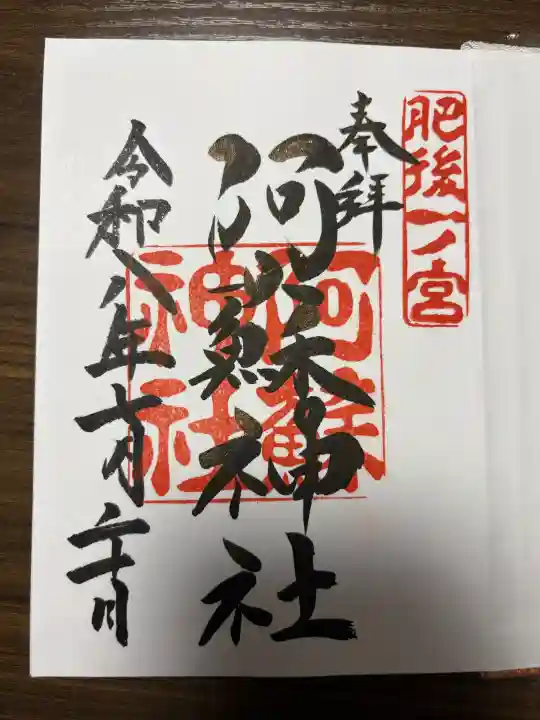 肥後一ノ宮
奉拝
阿蘇神社
阿蘇神社
令和八年七月二十日